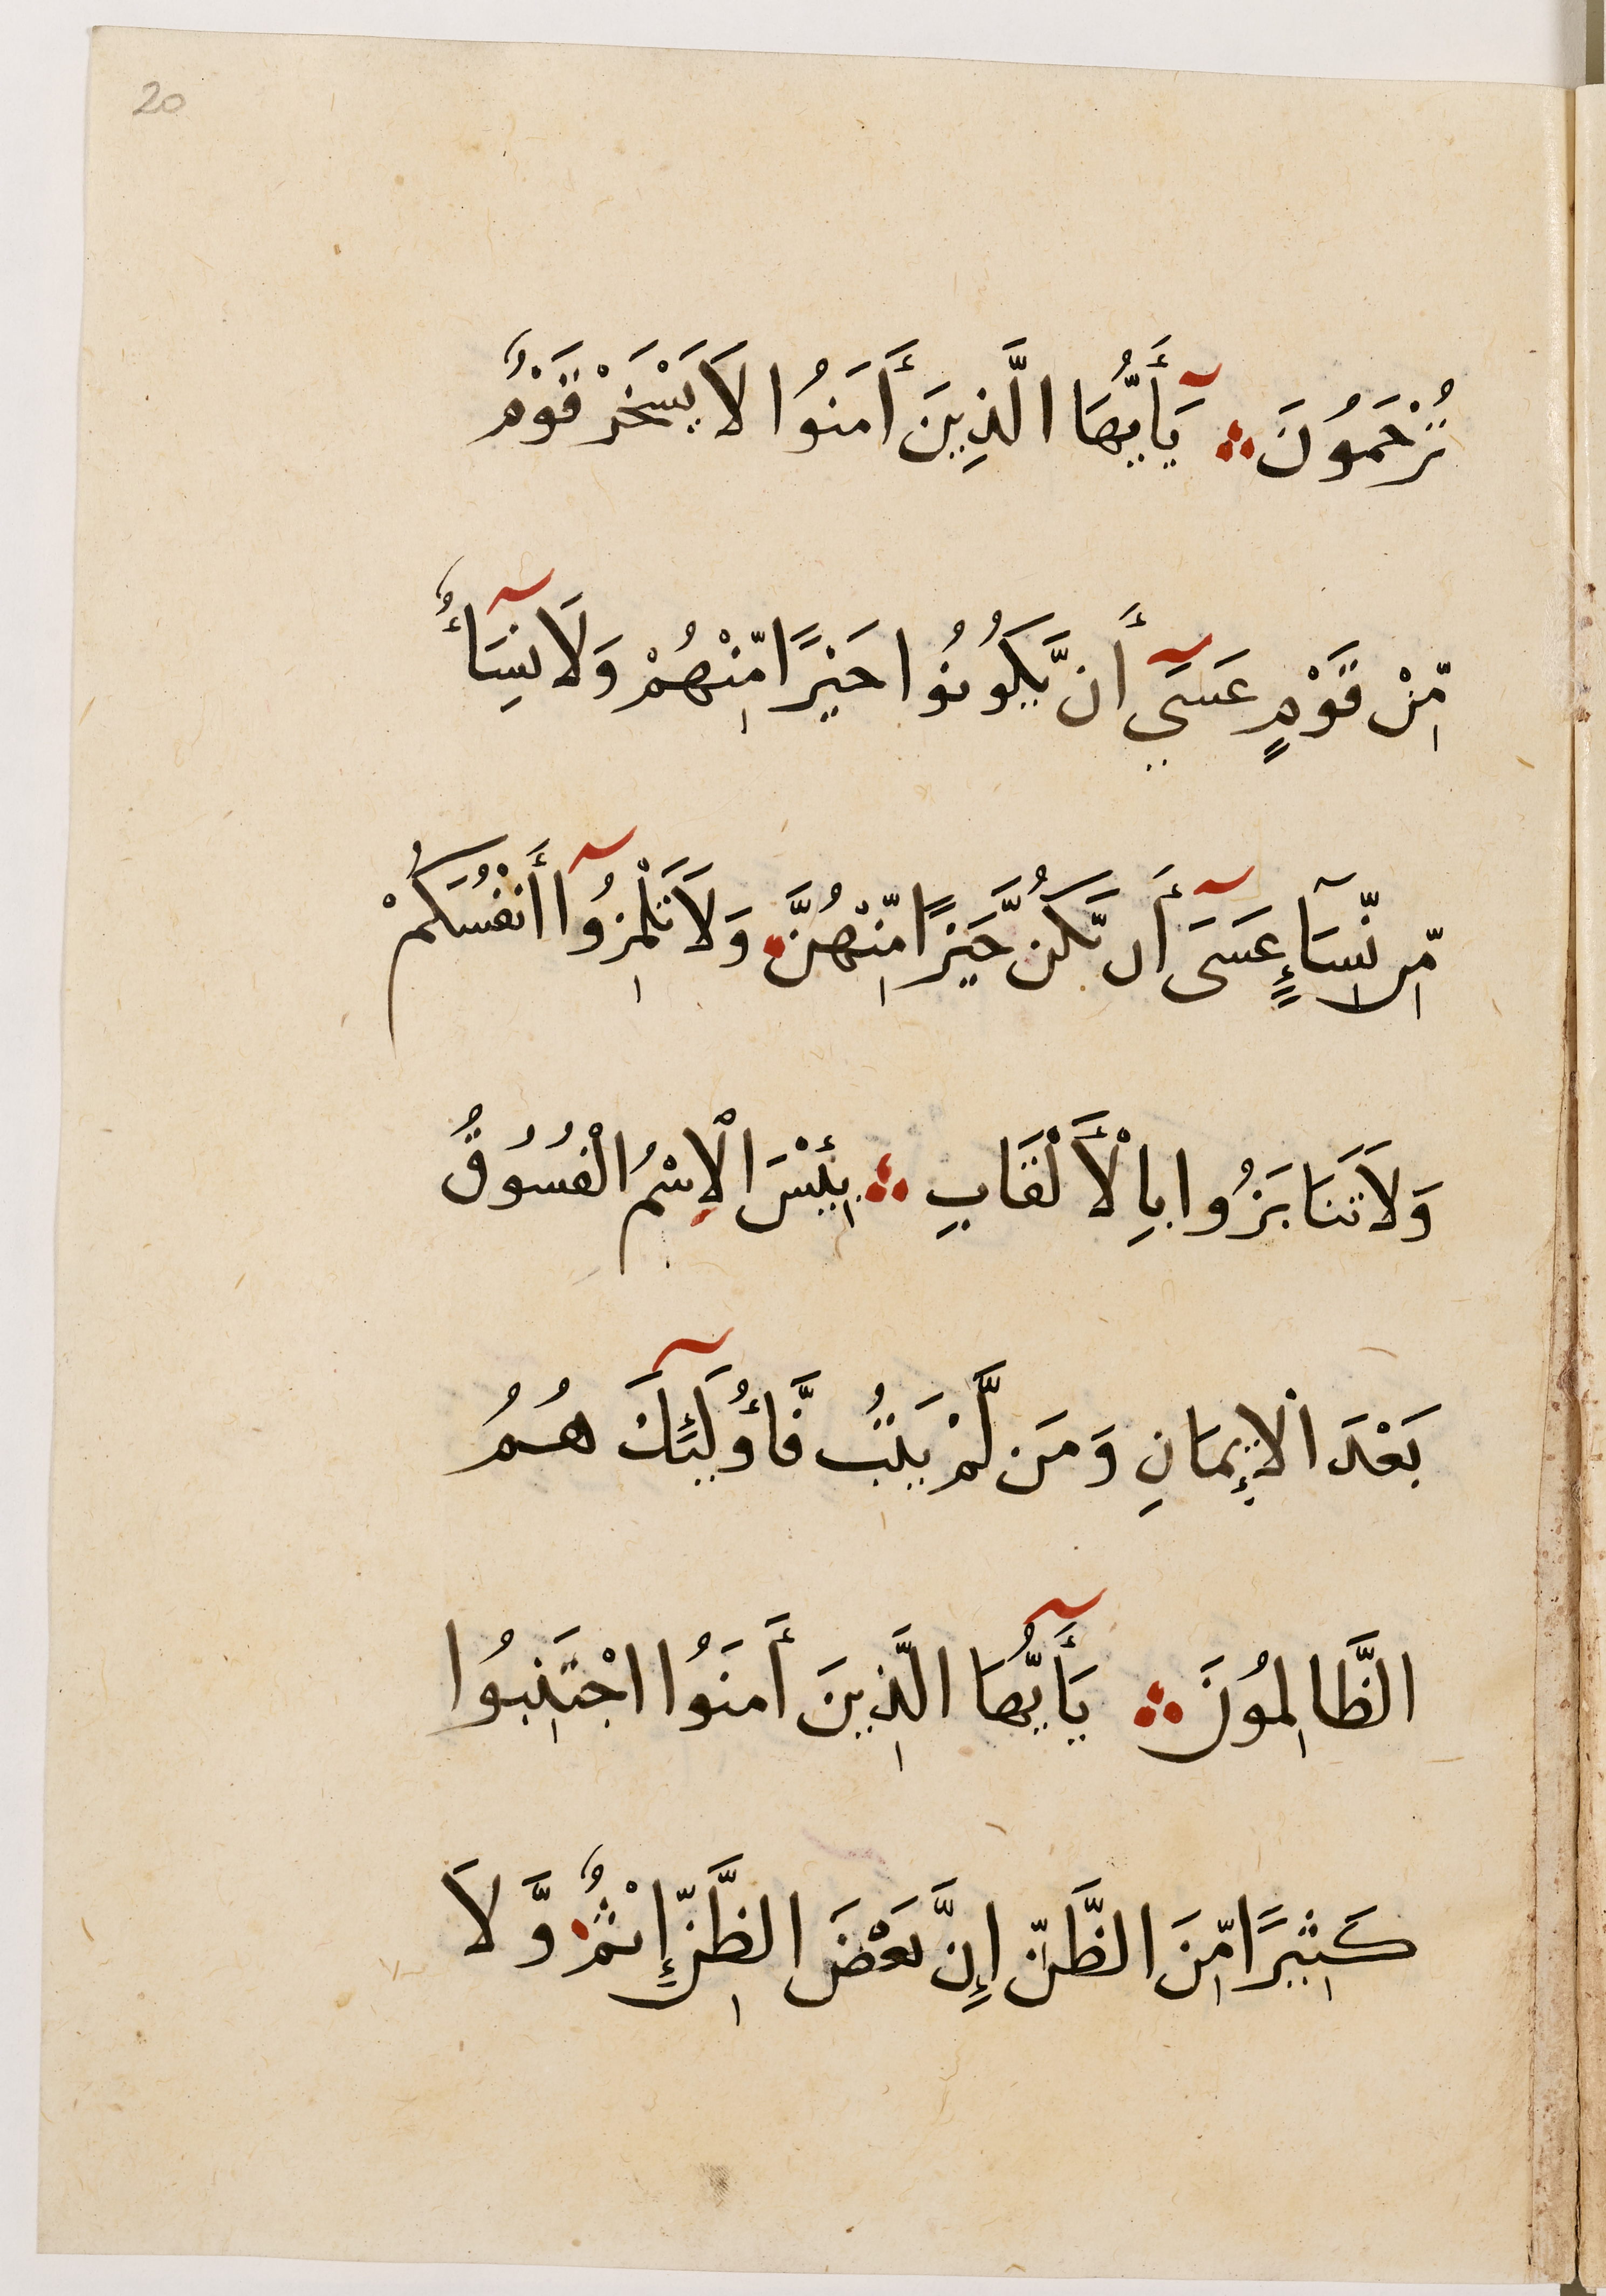 20
تُرْحَمُونَ ؞ يَٓأَيُّهَا الَّذِينَ أَمَنُوا لَا يَسْخَرْ قَوْمٌ
مِّنْ قَوْمٍ عَسَىٓ أَن يَّكُونُوا خَيْرًا مِّنْهُمْ وَلَا نِسَآءٌ
مِّن نِّسَآءٍ عَسَىٓ أَن يَّكُنَّ خَيْرًا مِّنْهُنَّ وَلَا تَلْمِزُوٓا أَنْفُسَكُمْ
وَلَا تَنَابَزُوا بِالْأَلْقَابِ ؞ بِئْسَ الْإِسْمُ الْفُسُوقُ
بَعْدَ الْإِيمَانِ وَمَن لَّمْ يَتُبْ فَأُولَٓئِكَ هُمُ
الظَّالِمُونَ ؞ يَٓأَيُّهَا الَّذِينَ أَمَنُوا اجْتَنِبُوا
كَثِيرًا مِّنَ الظَّنِّ إِنَّ بَعْضَ الظَّنِّ إِثْمٌ وَّلَا